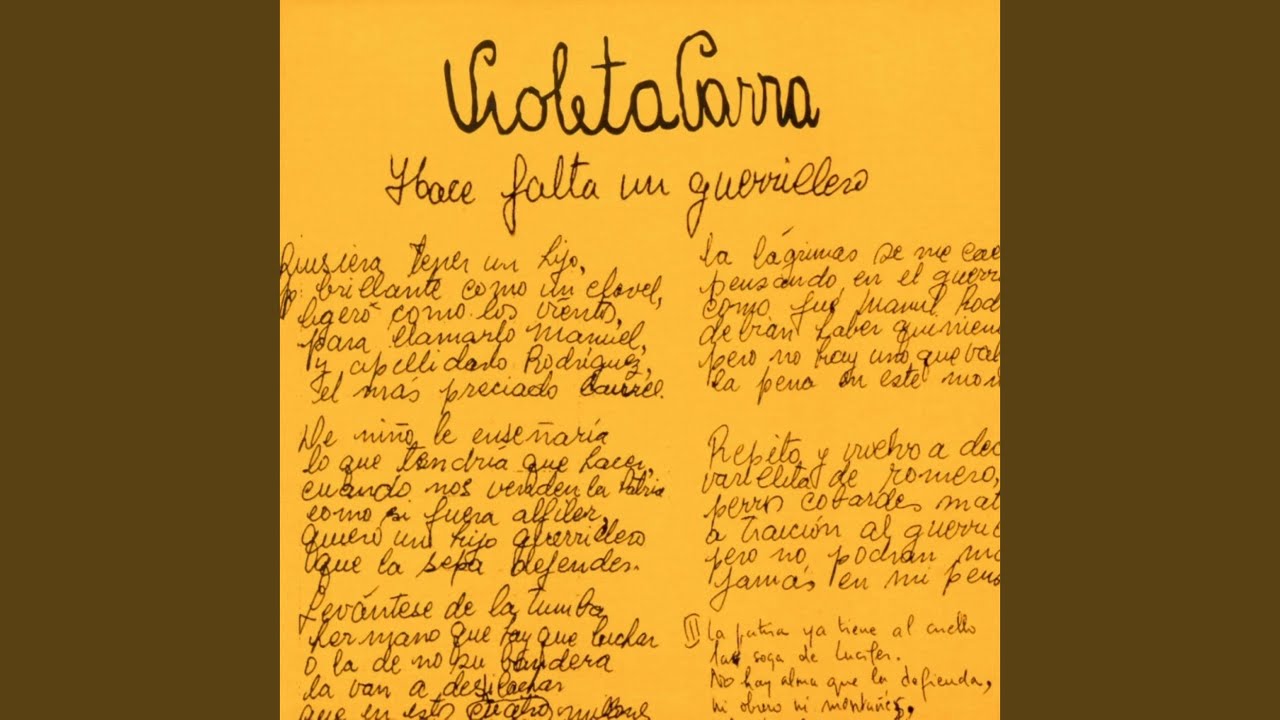 Violeta Parra
Hace falta un guerrillero
Quisiera tener un hijo,
brillante como un clavel,
ligero como los viento,
para llamarlo Manuel,
y apellidarlo Rodríguez,
el más preciado laurel.
De niño le enseñaría
lo que tendría que hacer,
cuando nos venden la Patria
como si fuera alfiler,
quiero un hijo guerrillero
que la sepa defender.
Levántese de la tumba
hermano que hay que luchar
o la de no su bandera
la van a desilachar
que en esto
la lágrimas se me cae
pensando en el guerri
como fue Manuel Rod
debrían haber quinien
pero no hay uno que val
la pena en este mom
Repito y vuelvo a dec
varillita de romero,
perros cobardes mat
a traición al guerri
pero no podrán ma
jamás en mi pens
II La patria ya tiene al cuello
la soga de Lucifer.
No hay alma que la defienda,
ni obrero ni montañés,